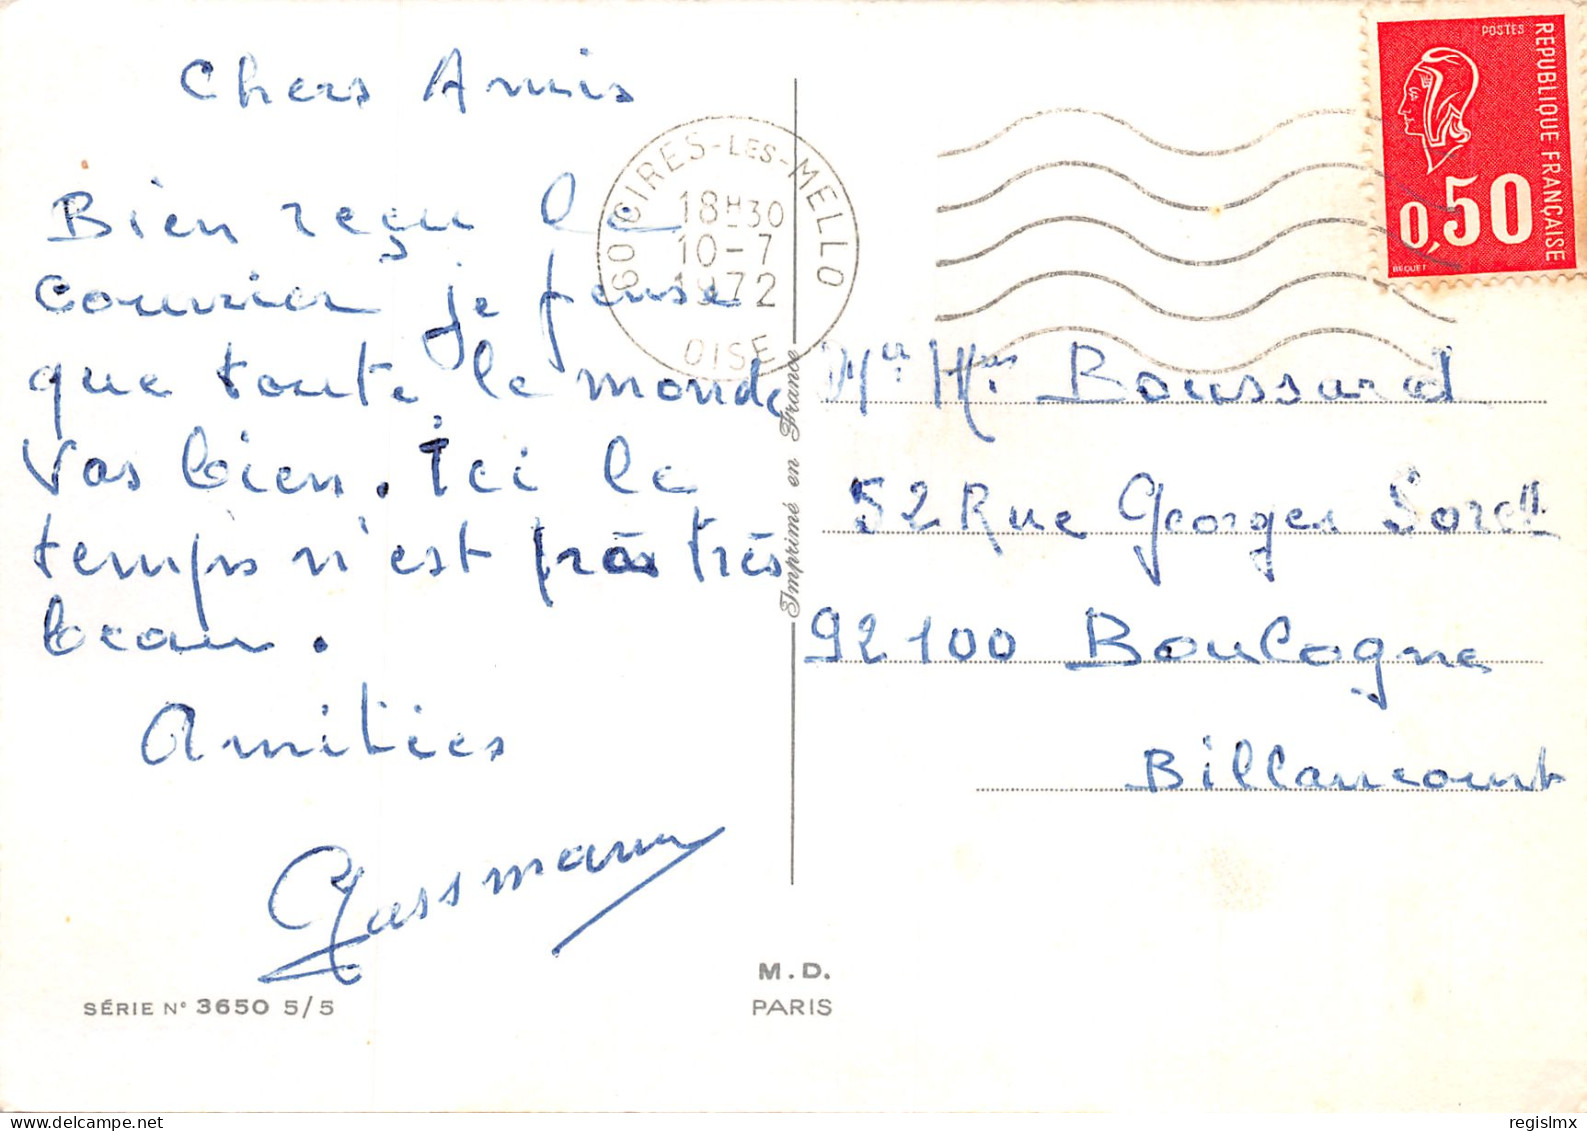 Chers Amis
Bien reçu le
courrier je pense
que toute le monde
vas bien. Ici le
temps n'est pas très
beau.
Amitiées
Gassmann
SÉRIE N° 3650 5/5
M.D.
PARIS
Imprimé en France
60 CIRES-LES-MELLO
18H30
10-7
1972
OISE
POSTES
REPUBLIQUE FRANÇAISE
0,50
BEQUET
Mr Mme Boussard
52 Rue Georges Sorel
92100 Boulogne
Billancourt
regislmx